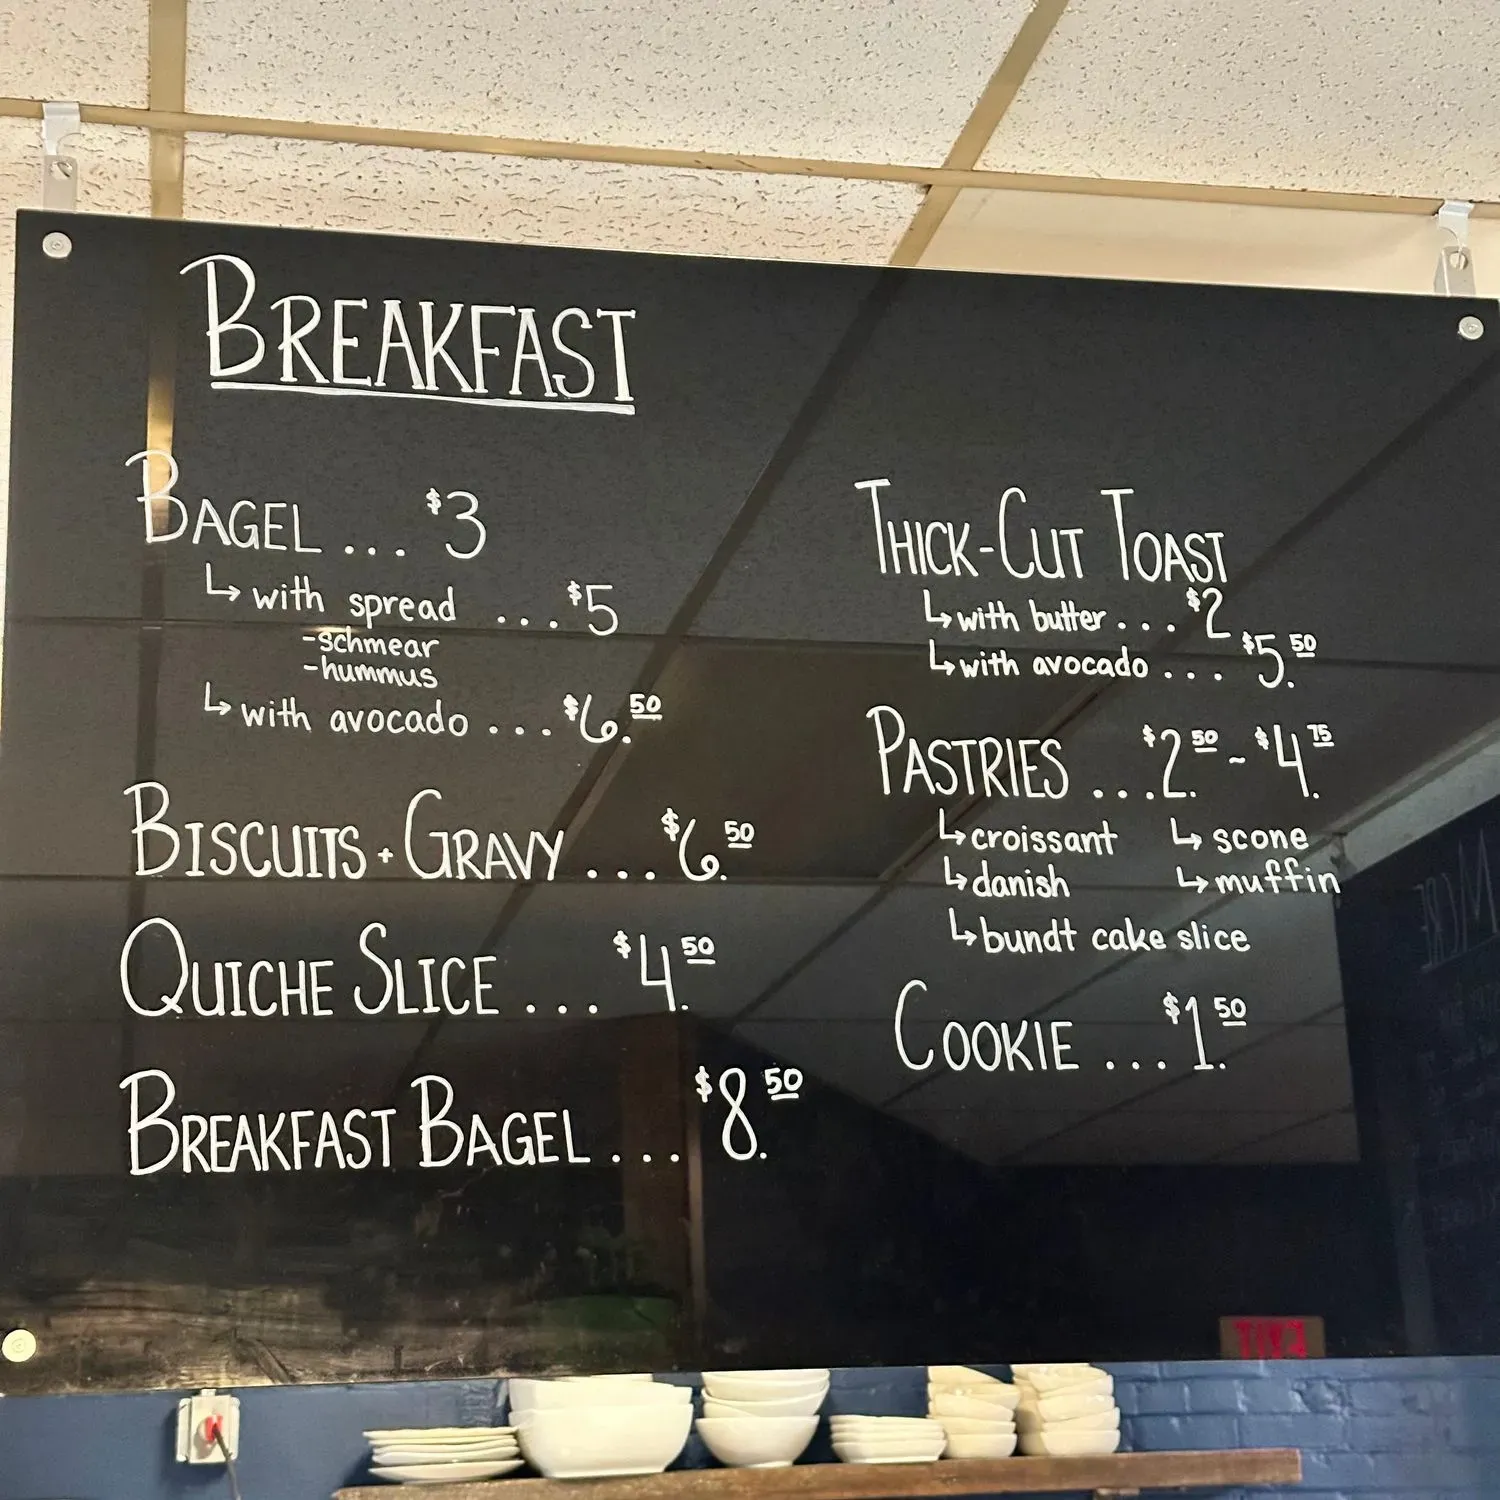 BREAKFAST
BAGEL ... $3
↳ with spread ... $5
-schmear
-hummus
↳ with avocado ... $6.50
BISCUITS + GRAVY ... $6.50
QUICHE SLICE ... $4.50
BREAKFAST BAGEL ... $8.50
THICK-CUT TOAST
↳ with butter ... $2
↳ with avocado ... $5.50
PASTRIES ... $2.50 ~ $4.75
↳ croissant ↳ scone
↳ danish ↳ muffin
↳ bundt cake slice
COOKIE ... $1.50
EXIT